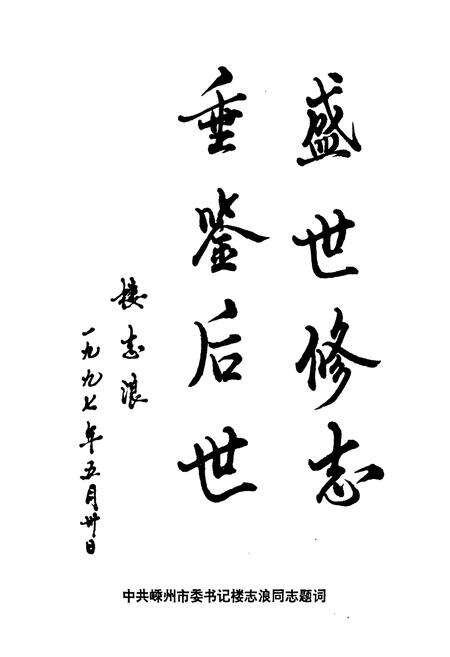 盛世修志
垂鉴后世
楼志浪
一九九七年五月卅日
中共嵊州市委书记楼志浪同志题词